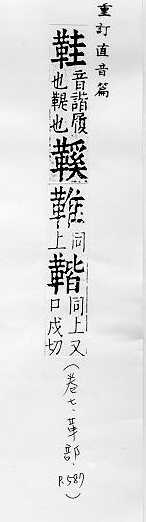 重訂直音篇
鞋音諧履也鞮也鞵同上同上又口戌切(卷七.革部.P.587)